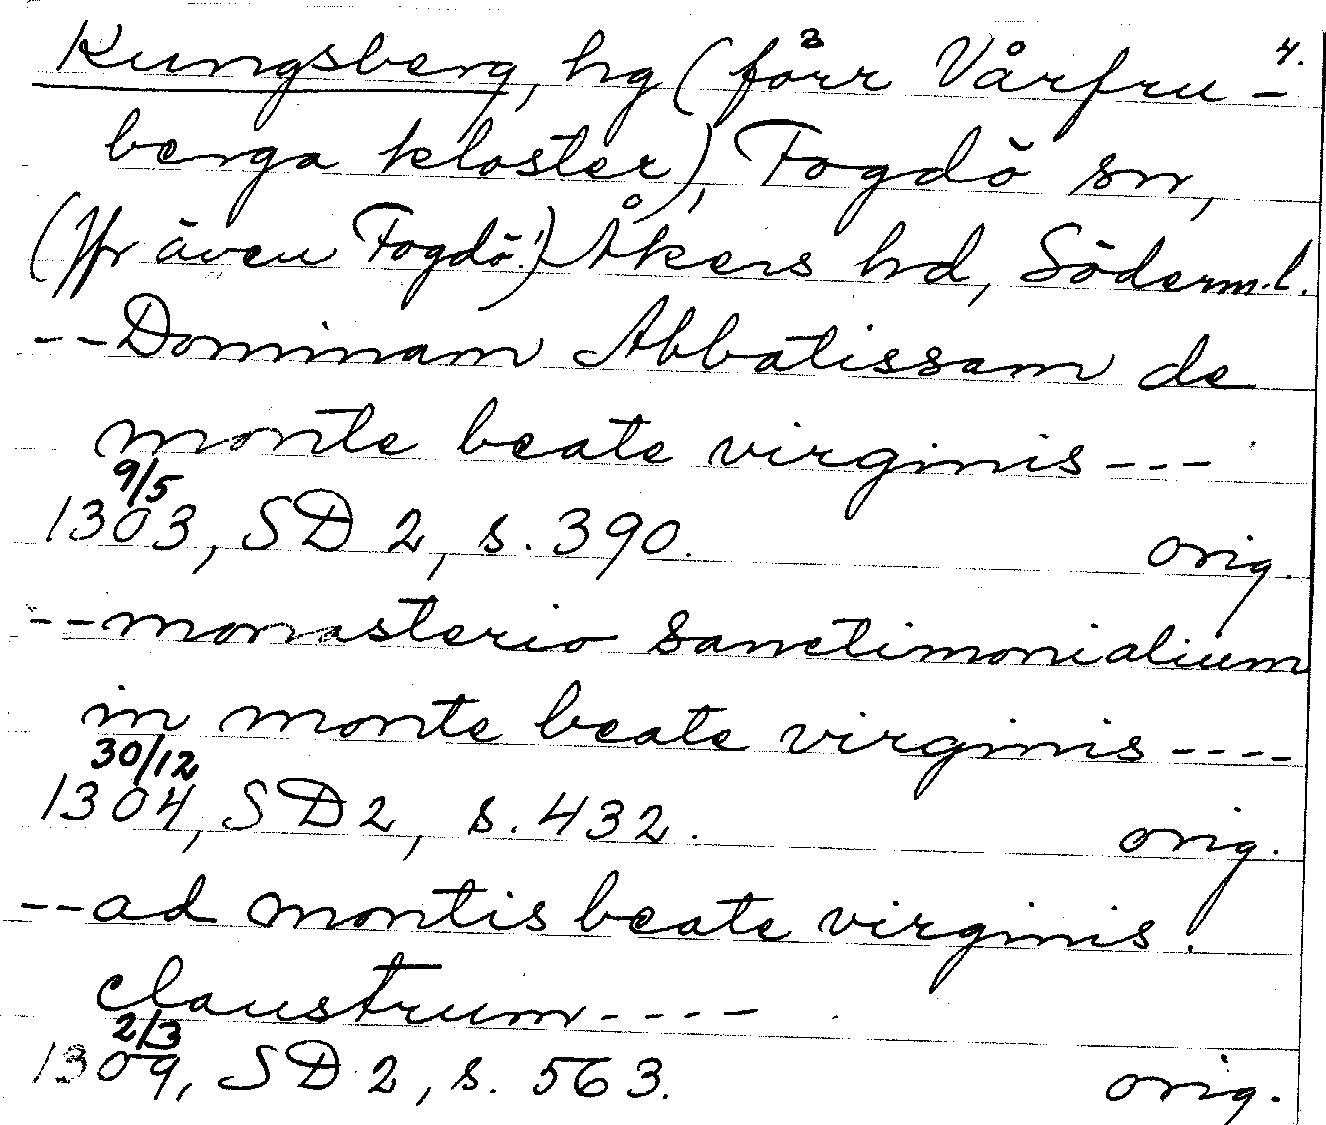 4.
Kungsberg, hg (förr Vårfru-
berga kloster), Fogdö sn,
(jfr även Fogdö!) Åkers hd, Söderm.l.
--Dominam Abbatissam de
monte beate virginis---
9/5
1303, SD 2, s. 390. orig.
--monasterio sanctimonialium
in monte beate virginis----
30/12
1304, SD 2, s. 432. orig.
--ad montis beate virginis.
claustrum----
2/3
1309, SD 2, s. 563. orig.